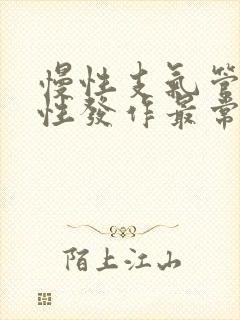 慢性支氣管
性發作最常
陌上江山